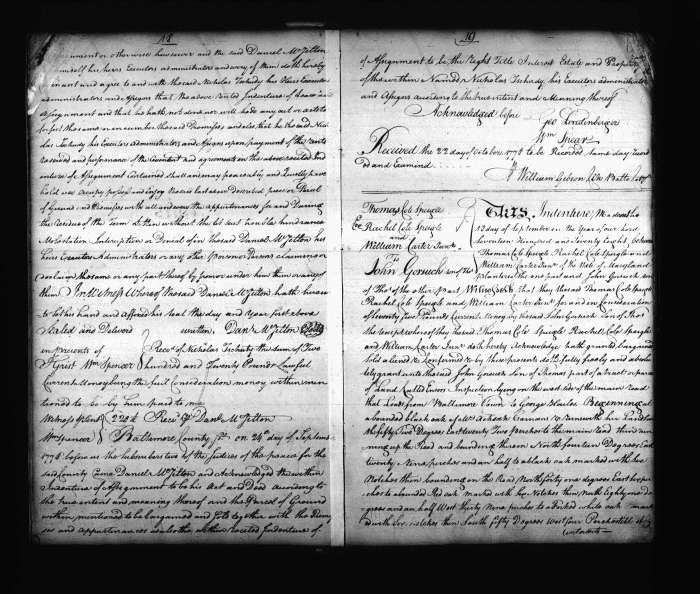 18
ument or otherwise howsoever and the said Daniel McJilton
himself his heirs Executors administrators and every of them doth hereby
enant and agree to and with the said Nicholas his Heirs Executors
administrators and Assigns that the above recited Indenture of Lease and
Assignment and that he hath not done nor will
or number the said Premises and also that he the said Nic
las his Executors Administrators and Assigns upon payment of the rents
reserved and performance of the Covenant and agreements in the above recited Ind
enture of Assignment Contained shall and may peaceably and Quietly have
hold use occupy possess and Enjoy the said last above described piece or Parcel
of Ground and Premises with all and every the appurtenances for and During
the residue of the Term without the let suit trouble hindrance
Molestation Interruption or Denial of him the said Daniel McJilton his
heirs Executors Administrators or any other Person or Persons claiming or
to claim the same or any part thereof by from or under him them or any of
them In Witness Whereof the said Daniel McJilton hath hereun
to set his hand and affixed his seal the day and year first above
written. Danl McJilton
Sealed and Delivered
in presents of
Wm Spencer
Recd of Nicholas the sum of Two
hundred and Twenty Pounds Lawful
Current Money being the full Consideration money within men
tioned to be by him paid to me
Witness
Wm Spencer
220 £ Recd Danl McJilton
Baltimore County Sct. on 24th day of Septem
1778 before us the subscribers two of the Justices of the peace for the
said County Came Daniel McJilton and Acknowledged the within
Indenture of Assignment to be his Act and Deed according to
the true intent and meaning thereof and the Parcel of Ground
within mentioned to be bargained and together with the Premi
ses and appurtenances as also the within recited Indenture of
19
of Assignment to be the Right Title Interest Estate and Property
of the within Named Nicholas his Executors administrators
and Assigns according to the true intent and Meaning thereof
Acknowledged before
Geo Lindenberger
Wm Spear
Received the 22 day of October 1778 to be Recorded same day
d and Examined
William Gibson Clk
Thomas Cole Speigle
Rachel Cole Speigle
and
William Carter Junr.
To
John Gorsuch son of Thos
THIS Indenture, Made this
12 day of September in the Year of our Lord
Seventeen Hundred and Seventy Eight, between
Thomas Cole Speigle Rachel Cole Speigle and
William Carter Junr of the State of Maryland
planters the one part and John Gorsuch son
of Thos of the other part Witnesseth that they the said Thomas Cole Speigle
Rachel Cole Speigle and William Carter Junr for and in Consideration
of Seventy five Pounds Current Money by the said John Gorsuch Son of Thos
the receipt whereof they the said Thomas Cole Speigle Rachel Cole Speigle
and William Carter Junr do hereby Acknowledge hath granted bargained
sold aliend & Confirmed & by these presents doth fully freely and absolu
tely grant unto the said John Gorsuch Son of Thomas part of a tract or parcel
of Land Called lying on the west side of the main road
that Leads from Baltimore Town to George Beginning at
a bounded black oak
the fifty two Degrees East Twenty Two perches to the main road then run
ning up the Road and bounding thereon North fourteen Degrees East
twenty Nine perches and an half to a black oak marked with Six
Notches then bounding on the Road North forty one degrees East Six per
ches to a bounded Red oak marked with Six Notches then North eighty one de
grees and an half West thirty Nine perches to a Forked white oak mark
ed with Six notches then South fifty Degrees West four Perches